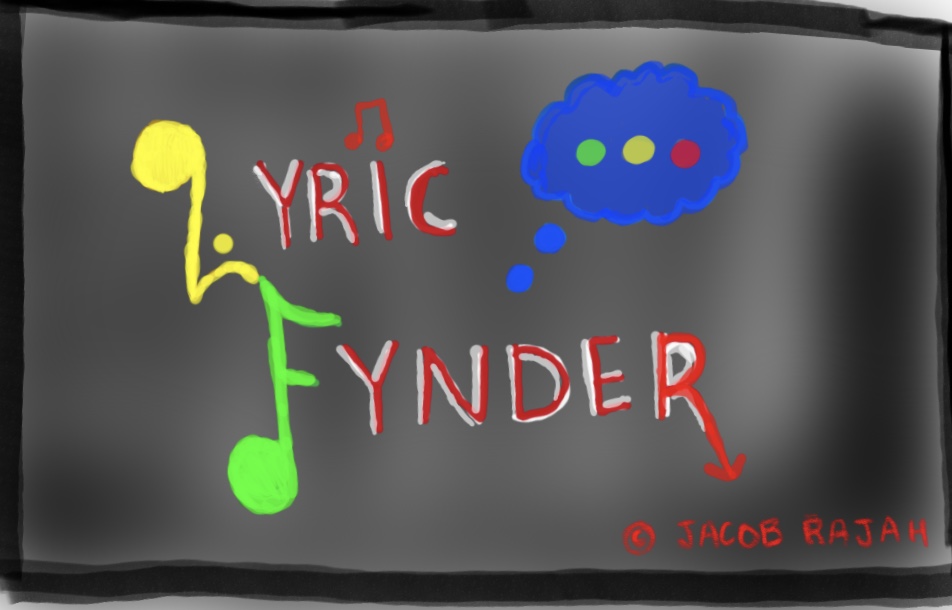 LYRIC
FYNDER
© JACOB RAJAH